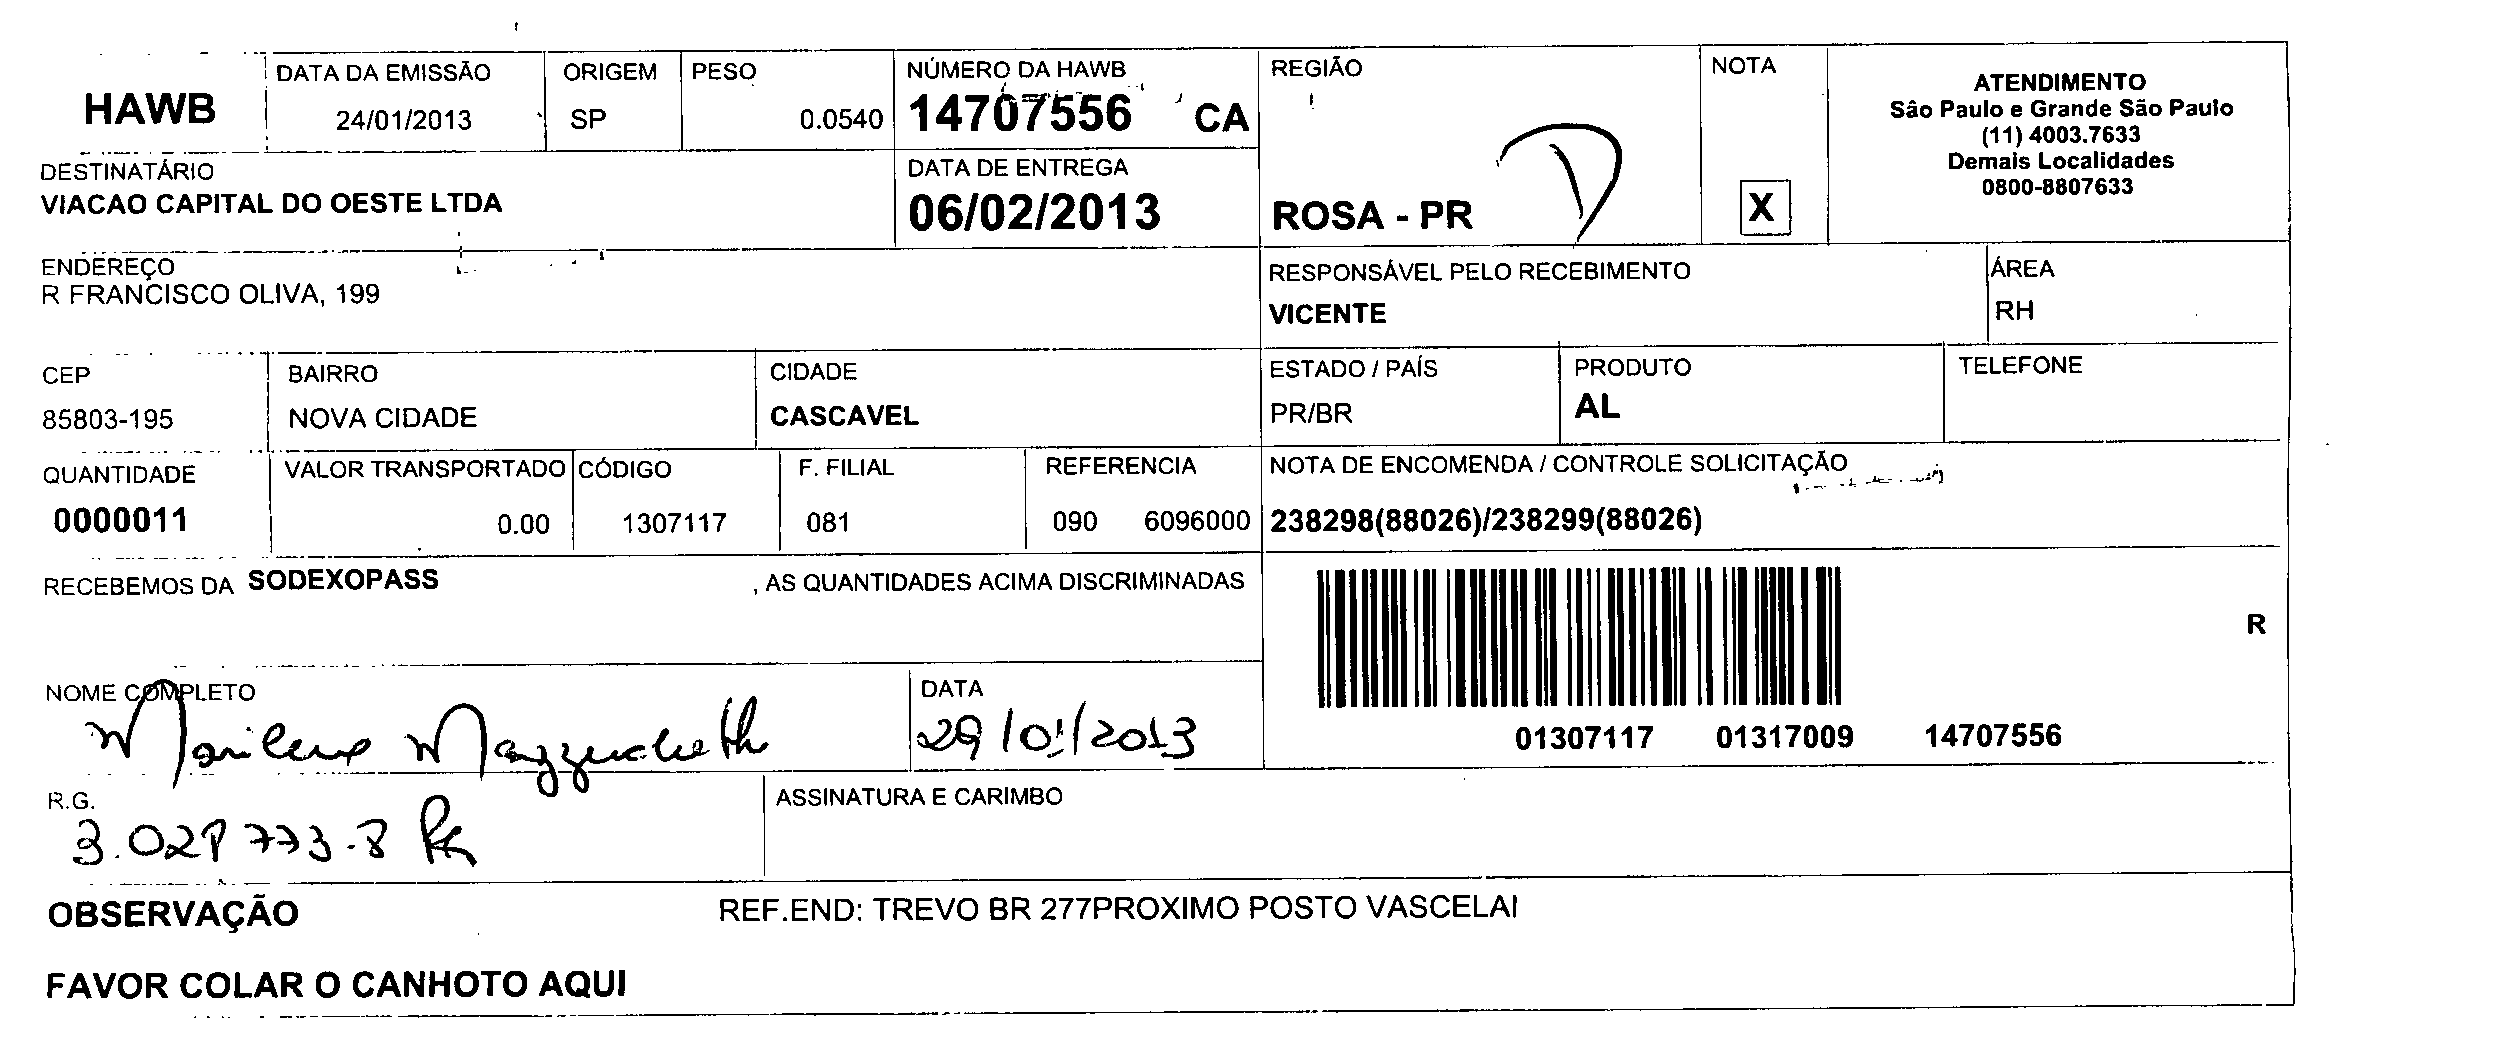 HAWB
DATA DA EMISSÃO
24/01/2013
ORIGEM
SP
PESO
0.0540
NÚMERO DA HAWB
14707556 CA
DATA DE ENTREGA
06/02/2013
REGIÃO
ROSA - PR
NOTA
X
ATENDIMENTO
São Paulo e Grande São Paulo
(11) 4003.7633
Demais Localidades
0800-8807633
DESTINATÁRIO
VIACAO CAPITAL DO OESTE LTDA
ENDEREÇO
R FRANCISCO OLIVA, 199
RESPONSÁVEL PELO RECEBIMENTO
VICENTE
ÁREA
RH
CEP
85803-195
BAIRRO
NOVA CIDADE
CIDADE
CASCAVEL
ESTADO / PAÍS
PR/BR
PRODUTO
AL
TELEFONE
QUANTIDADE
0000011
VALOR TRANSPORTADO
0.00
CÓDIGO
1307117
F. FILIAL
081
REFERENCIA
090 6096000
NOTA DE ENCOMENDA / CONTROLE SOLICITAÇÃO
238298(88026)/238299(88026)
RECEBEMOS DA SODEXOPASS , AS QUANTIDADES ACIMA DISCRIMINADAS
R
01307117 01317009 14707556
NOME COMPLETO
Marilene
DATA
29/01/2013
R.G.
3.028 773-8 PR
ASSINATURA E CARIMBO
OBSERVAÇÃO
REF.END: TREVO BR 277PROXIMO POSTO VASCELAI
FAVOR COLAR O CANHOTO AQUI